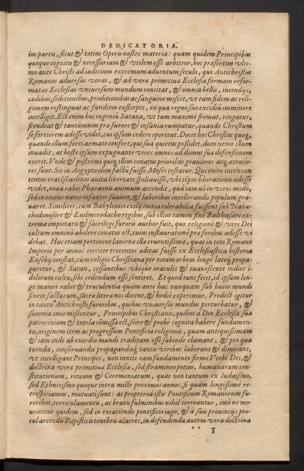 DEDICATORIA.
iu partu, sicut & totum Operu nostri materia: quam quidem Principibus
quoque cognitu & necessariam & utilem esse arbitror, hoc præsertim ulti-
mo ante Christi ad iudicium extremum aduentum seculo, quo Antichristus
Romanus aduersus veras, & ad vera primitiua Ecclesia formam refor-
matas Ecclesias vniuersum mundum concitat, & omnia bellu, incendys,
cædibus, seditionibus, proditionibus ac sanguine miscet, vt tam fidem ac reli-
gionem restinguat ac funditus exstirpet, quam regno suo excidiu imminere
intelligit. Est enim hoc ingenium Satana, vt tum maxime fremat, ringatur,
frendeat & tantummodo præ furore & insania rumpatur, quando Christum
se fortiorem adesse videt, cui ipsum cedere oporteat. Docet hoc Christus quoq,
quando illum forti armato confert, qui sua quietus possidet, dum nemo illum
inuadit, at hoste ipsum expugnare vires omnes ad domus suæ defensionem
exerit. Vnde & postremi quiq illius conatus prioribus grauiores atq atrocio-
res sunt. Sic in Aegypto olim factu fuisse Moses testatur. Qui enim initio cum
terrere erat Israelitas auita libertate spoliasse, vbi tempus liberationis adesse
videt, noua rabie Pharaonis animum accendit, quâ iam nō in viros modò,
sed in recens natos infantes sæuiret, & laboribus intolerandis populum gra-
uaret. Similiter, cum Babylonici exilij mitia tolerabilia fuissent sub Nabu-
chodonosore & Euilmerodacho regibus, sub illius tamen fine Balthasaris ex-
trema impietas & sacrilegus furoris author fuit, quo religionē & veri Dei
cultum omnino abolere conatus est, suum instaurationi præ foribus adesse vi-
debat. Huc etiam pertinent sanctorum illa cruentissima, quas in toto Romano
Imperio per annos circiter trecentos editas fuisse ex Ecclesiastica historia
Eusebij constat, cum religio Christiana per totum orbem longe lateq propa-
garetur, & Satan, cessantibus vbique oraculis & euanescente indies i-
dolorum cultu, sibi cedendum esse sentiret. Et quod tunc fecit, id ipsum lon-
ge maiore rabie & truculentia quàm ante hac nunquam sub huius mundi
finem facturum, sacra litera nos docent, & hodie experimur. Prodest igitur
in tantis Antichristi furoribus, quibus vniuersus mundus perturbatur, &
summa imis miscentur, Principibus Christianis, quibus à Deo Ecclesia sua
patrocinium & tutela commissa est, scire & probè cognita habere fundamen-
ta, originem item ac progressum Pontificiæ religionis, quam antiquissimam
& iam inde ab exordio mundi traditam esse subinde clamant, & pro qua
tuenda, conseruanda, propagandáq tantis viribus laborant & dimicant,
vt intelligant Principes, non inniti eam fundamento firmo Verbi Dei, &
doctrina vera primitiuæ Ecclesiæ, sed stramineo potius, humanarum con-
stitutionum, rituum & Ceremoniarum, quas non tantum ex Iudaismo,
sed Ethnicismo quoque intra mille proximos annos, si quàm longissimè re-
trospiciamus, mutuati sunt: ac propterea istis Pontificum Romanorum fu-
roribus, terriculamentis, ac brutis fulminibus nihil terreantur, imo ne mo-
ueantur quidem, sed in excutiendo pontificio iugo, & à suis prouincijs pro-
cul arcendis Papisticis tenebris alacres, in defendenda autem vera doctrina
** 3